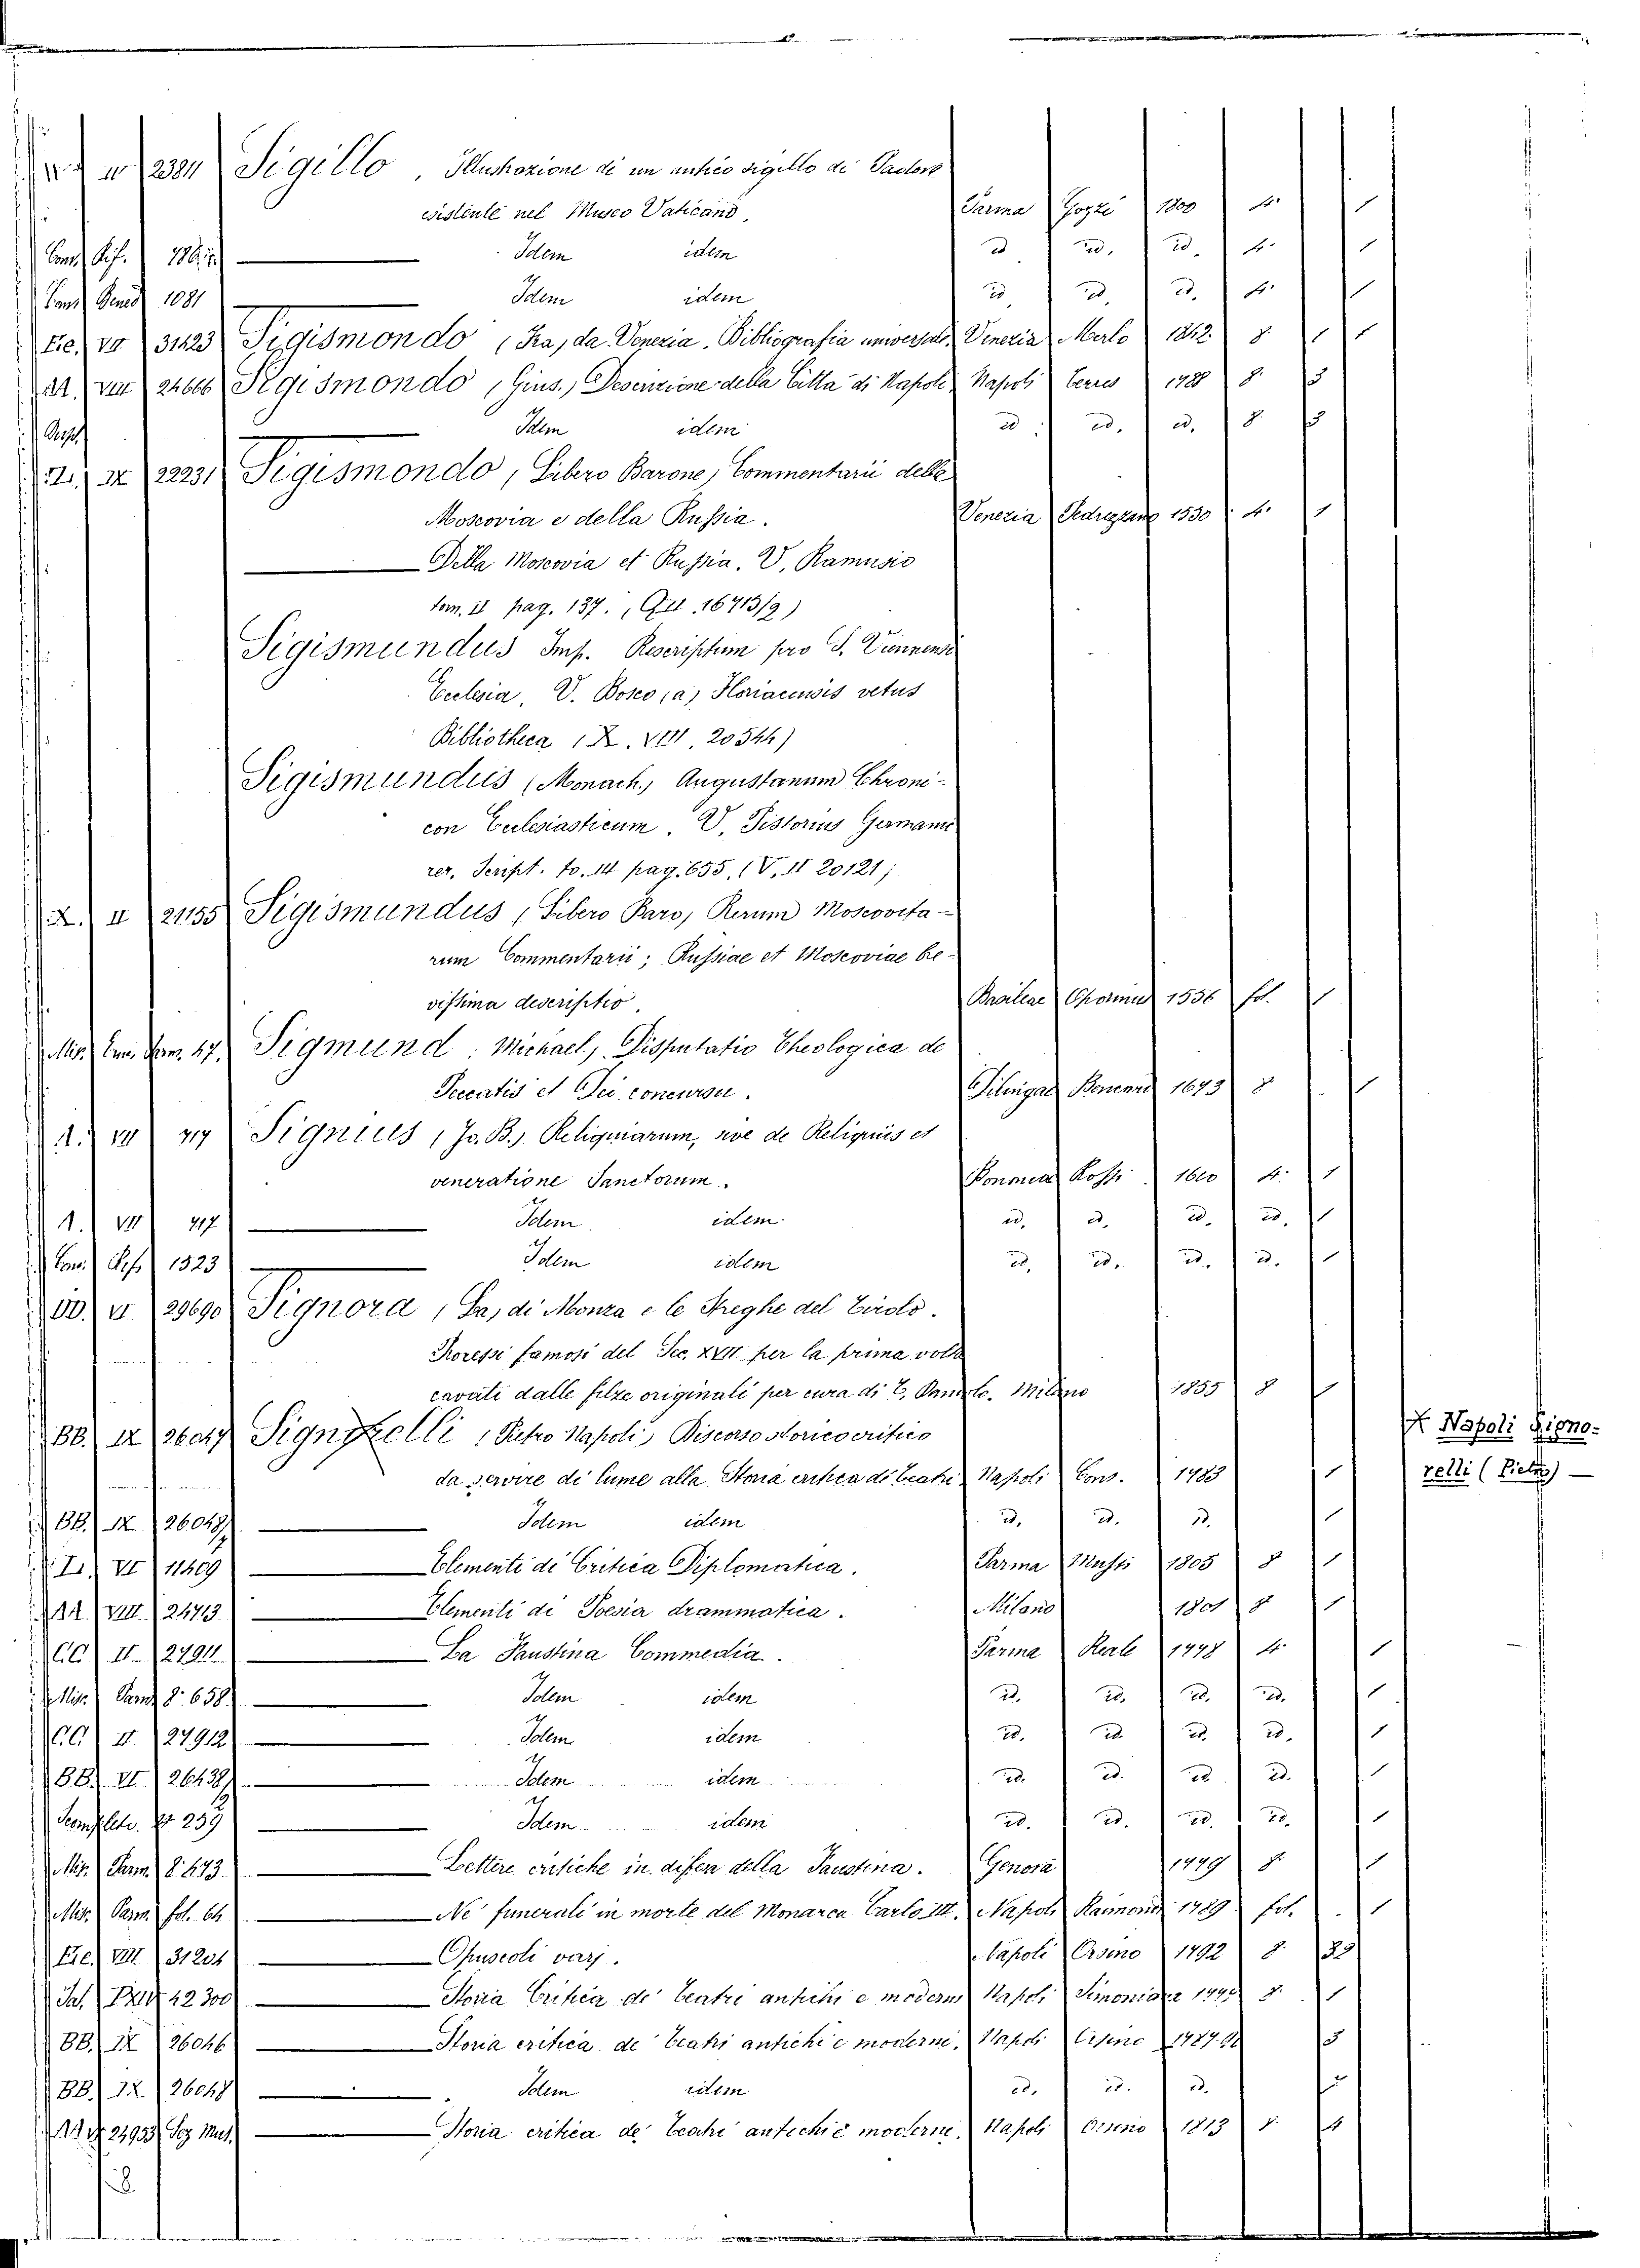 2384 Sigillo, Illustrazione di un antico sigillo di Padova
esistente nel Museo Vaticano. Parma Gozzi 1800 4. 1
Idem idem id. id. id. 4. 1
Cons. Gened. 1081 Idem idem id. id. id. 4. 1
EE. VII 31423 Sigismondo (Fra) da Venezia. Bibliografia universale. Venezia Merlo 1842. 8. 1
AA. VIII 24666 Sigismondo (Gius.) Descrizione della Città di Napoli. Napoli Terres 1788 8. 3
Idem idem id. id. id. 8. 3
Z. IX 22231 Sigismondo, Libero Barone, Commentarii della
Moscovia e della Russia. Venezia Pedrezzano 1550 4. 1
Della Moscovia et Russia. V. Ramusio
tom. II pag. 137. (QII 16713/2)
Sigismundus Imp. Rescriptum pro S. Viennensi
Ecclesia, V. Bosco (a) Floriacensis vetus
Bibliotheca (X. VIII. 20544)
Sigismundus (Monach.) Augustanum Chroni-
con Ecclesiasticum. V. Pistorius German
rer. Script. to. III pag. 655. (V. II 20121)
X. II 21155 Sigismundus (Libero Baro) Rerum Moscovita-
rum Commentarii; Russiae et Moscoviae bre-
vissima descriptio. Basileae Oporinus 1556 fol. 1
Mis. Erm. Parm. 47. Sigmund, Michael, Disputatio Theologica de
Peccatis et Dei concursu. Dilingae Bencard 1673 8 1
A. VII 417 Signius (Jo. B.) Reliquiarum, sive de Reliquiis et
veneratione Sanctorum. Bononiae Rossi 1610 4. 1
A. VII 417 Idem idem id. id. id. id. 1
Cons. Rif. 1523 Idem idem id. id. id. id. 1
DD. VI 29690 Signora (La) di Monza e le Streghe del Tirolo.
Processi famosi del Sec. XVII per la prima volta
cavati dalle filze originali per cura di Milano 1855 8 1
BB. IX 26047 Signorelli (Pietro Napoli) Discorso storico critico
da servire di lume alla Storia critica di teatri Napoli Cons. 1783 1
X Napoli Signo-
relli (Pietro) —
BB. IX 26049 Idem idem id. id. id. 1
I. VI 11409 Elementi di Critica Diplomatica. Parma Mussi 1805 8 1
AA. VIII. 24713 Elementi di Poesia drammatica. Milano 1801 8 1
CC. II. 27911 La Faustina Commedia. Parma Reale 1778 4. 1
Mis. Parm. 8. 658 Idem idem id. id. id. id. 1
CC. II. 27912 Idem idem id. id. id. id. 1
BB. VI. 26438 Idem idem id. id. id. id. 1
259 Idem idem id. id. id. id. 1
Mis. Parm. 8. 673 Lettere critiche in difesa della Faustina. Genova 1779 8 1
Mis. Parm. fol. 64 Ne' funerali in morte del Monarca Carlo III. Napoli Raimondi 1789 fol. 1
EE. VIII. 31204 Opuscoli varj. Napoli Orsino 1792 8.
Sal. 42300 Storia Critica de' teatri antichi e moderni Napoli Simoniana 8. 1
BB. IX 26046 Storia critica de' teatri antichi e moderni. Napoli Orsino 1787.90
BB. IX 26048 Idem idem id. id. id.
24933 Storia critica de' teatri antichi e moderni. Napoli Orsino 1813 8
8